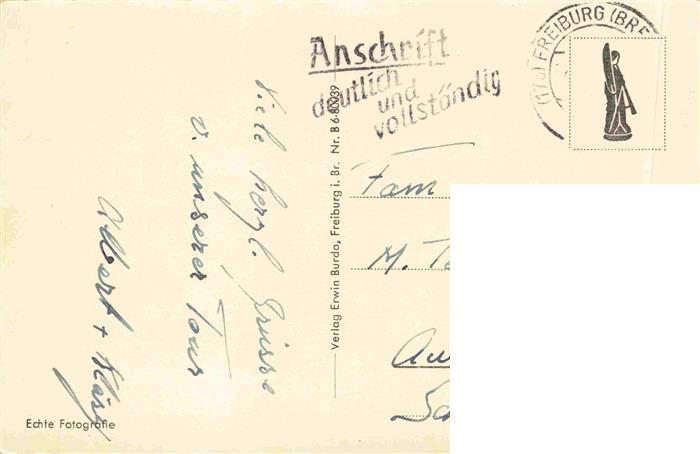 Anschrift
deutlich
und
vollständig
(17b) FREIBURG (BRE
Viele herzl. Grüsse
v. unserer Tour
Albert +
Verlag Erwin Burda, Freiburg i. Br. Nr. B 6-80039
Fam
M. Te
Echte Fotografie